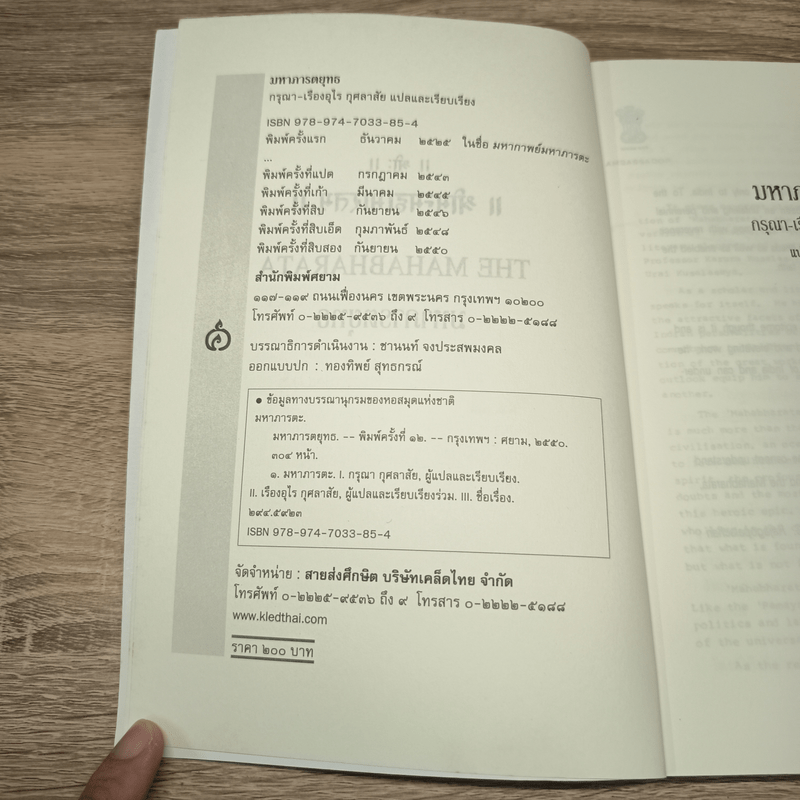 มหาภารตยุทธ
กรุณา-เรืองอุไร กุศลาสัย แปลและเรียบเรียง
ISBN 978-974-7033-85-4
พิมพ์ครั้งแรก ธันวาคม ๒๕๒๕ ในชื่อ มหากาพย์มหาภารตะ
...
พิมพ์ครั้งที่แปด กรกฎาคม ๒๕๔๓
พิมพ์ครั้งที่เก้า มีนาคม ๒๕๔๕
พิมพ์ครั้งที่สิบ กันยายน ๒๕๔๖
พิมพ์ครั้งที่สิบเอ็ด กุมภาพันธ์ ๒๕๔๘
พิมพ์ครั้งที่สิบสอง กันยายน ๒๕๕๐
สำนักพิมพ์ศยาม
๑๑๗-๑๑๙ ถนนเฟื่องนคร เขตพระนคร กรุงเทพฯ ๑๐๒๐๐
โทรศัพท์ ๐-๒๒๒๕-๙๕๓๖ ถึง ๙ โทรสาร ๐-๒๒๒๒-๕๑๘๘
บรรณาธิการดำเนินงาน : ชานนท์ จงประสพมงคล
ออกแบบปก : ทองทิพย์ สุทธกรณ์
● ข้อมูลทางบรรณานุกรมของหอสมุดแห่งชาติ
มหาภารตะ.
มหาภารตยุทธ. -- พิมพ์ครั้งที่ ๑๒. -- กรุงเทพฯ : ศยาม, ๒๕๕๐.
๓๐๔ หน้า.
๑. มหาภารตะ. I. กรุณา กุศลาสัย, ผู้แปลและเรียบเรียง.
II. เรืองอุไร กุศลาสัย, ผู้แปลและเรียบเรียงร่วม. III. ชื่อเรื่อง.
๒๙๔.๕๙๒๓
ISBN 978-974-7033-85-4
จัดจำหน่าย : สายส่งศึกษิต บริษัทเคล็ดไทย จำกัด
โทรศัพท์ ๐-๒๒๒๕-๙๕๓๖ ถึง ๙ โทรสาร ๐-๒๒๒๒-๕๑๘๘
www.kledthai.com
ราคา ๒๐๐ บาท